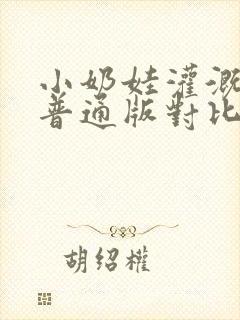 小奶娃灌溉
普通版對比
胡紹權